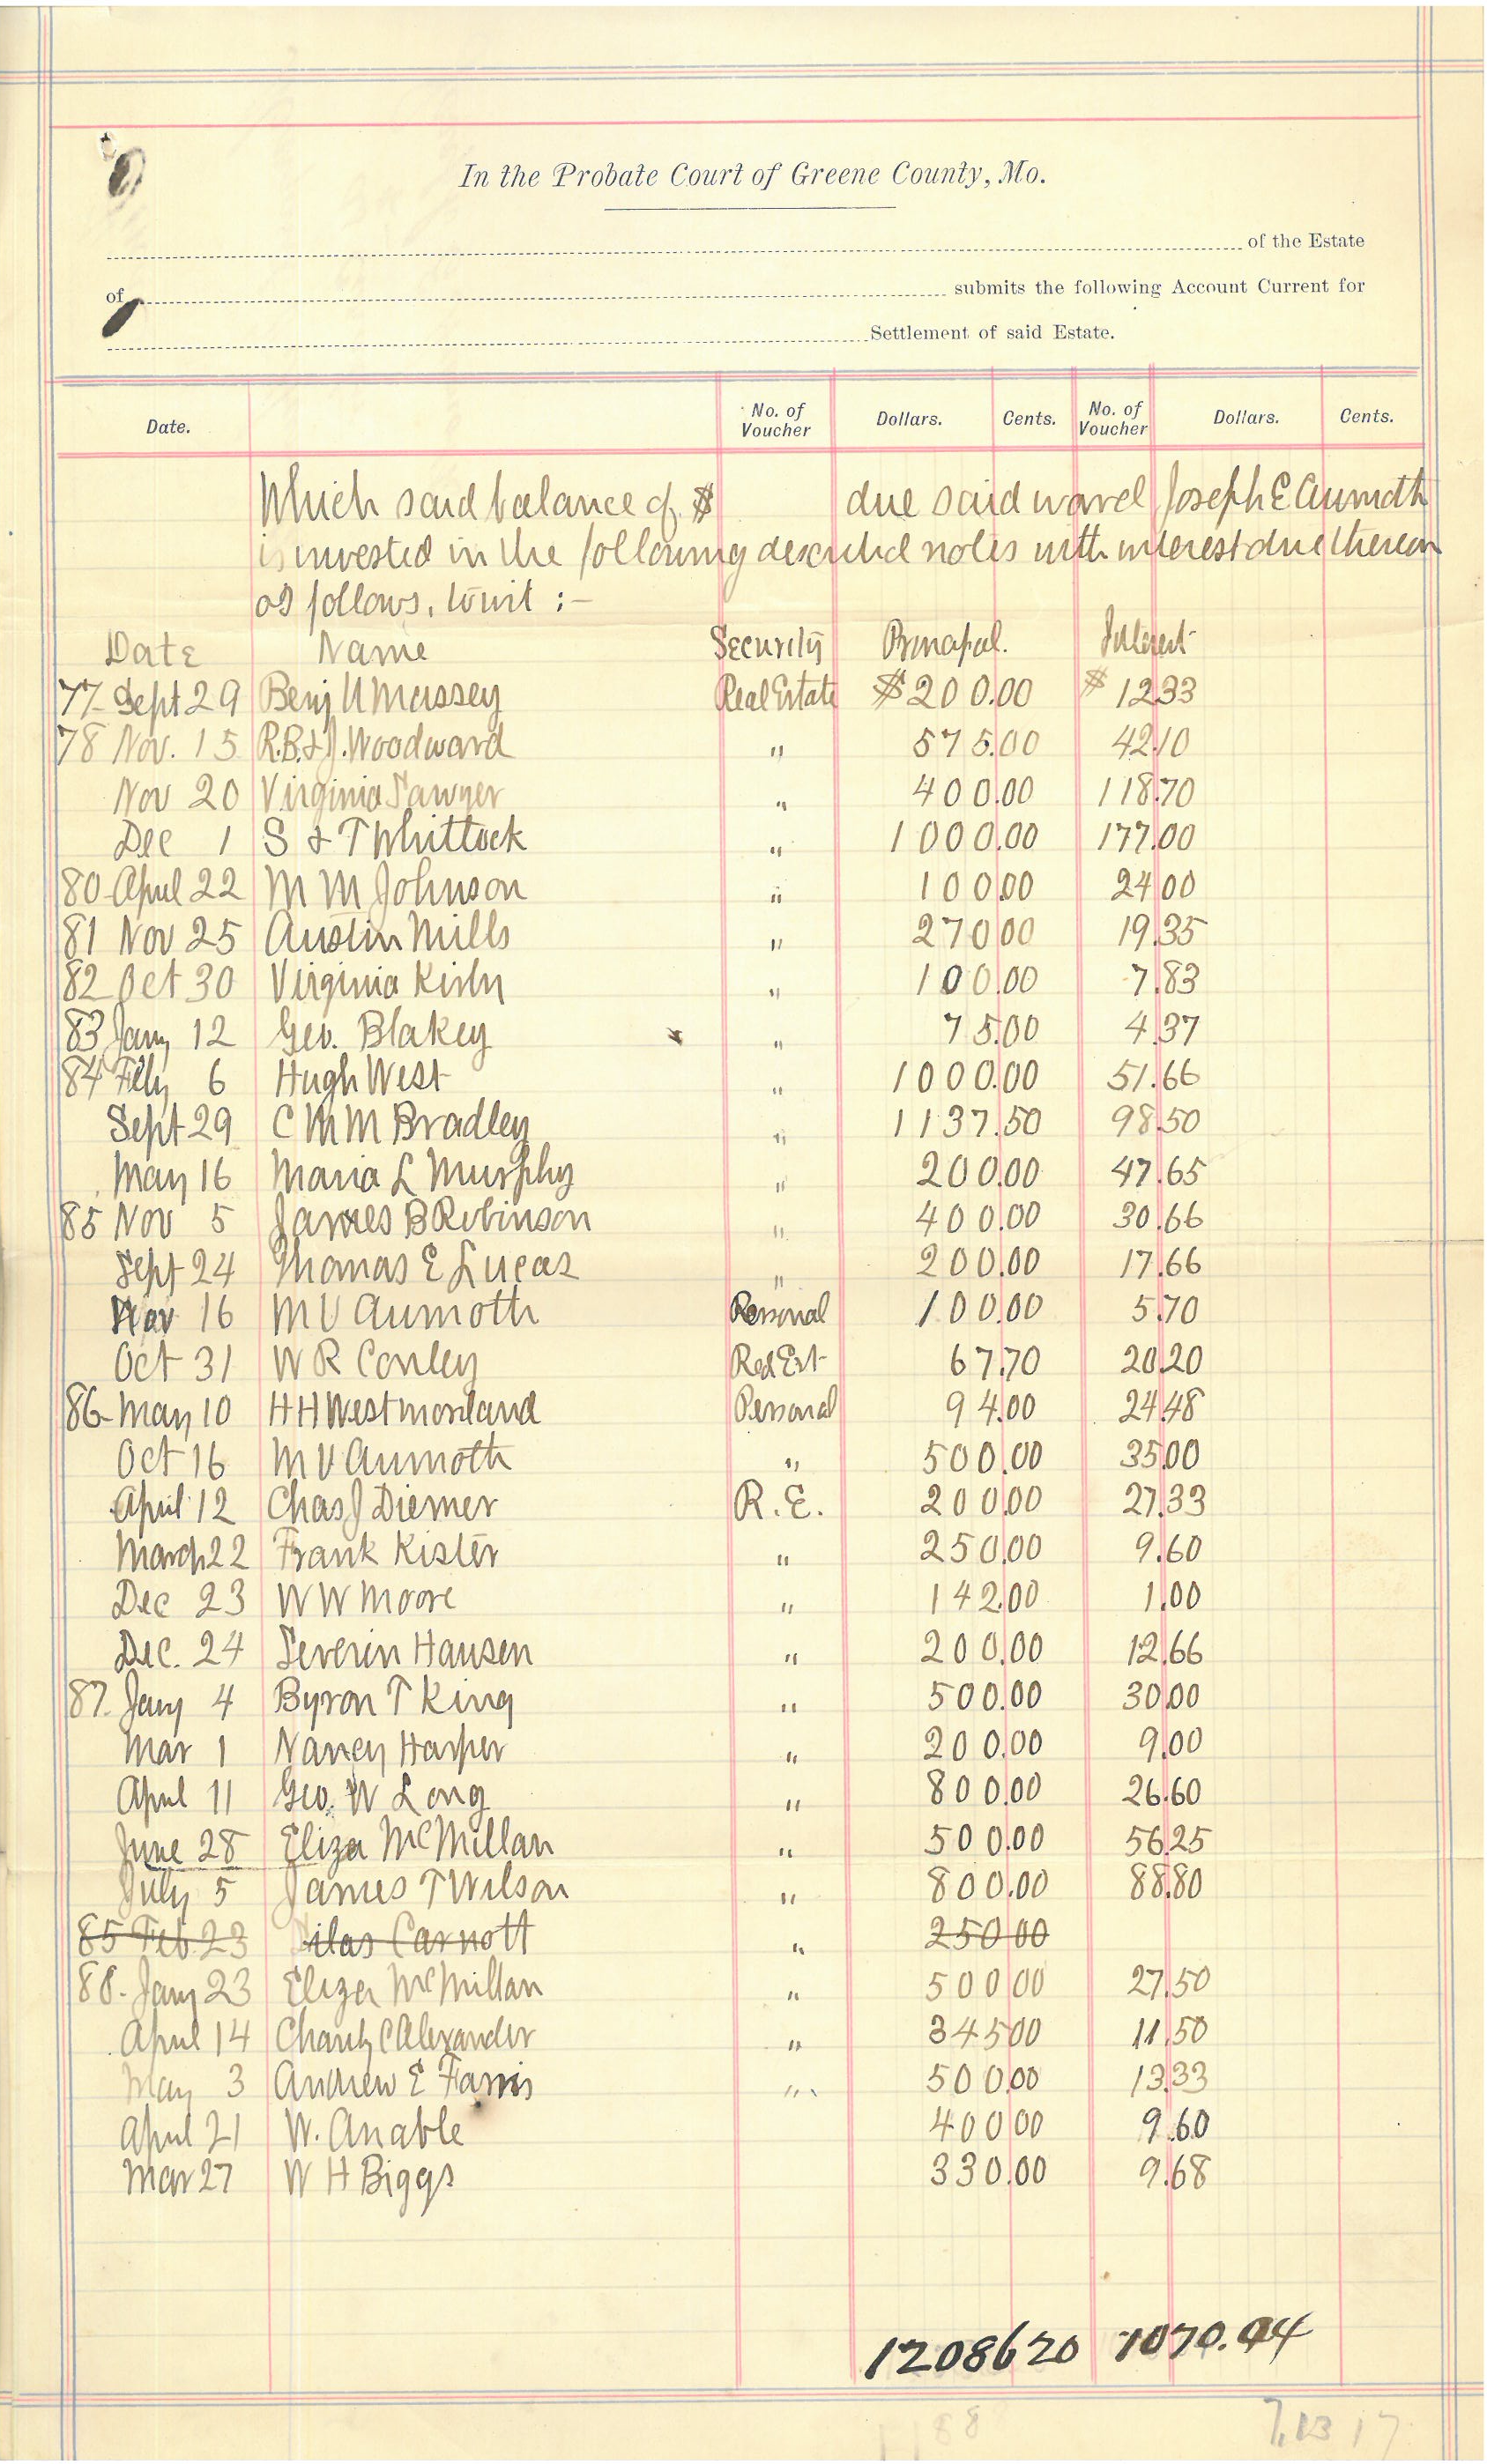 In the Probate Court of Greene County, Mo.
of the Estate
of submits the following Account Current for
Settlement of said Estate.
Date. No. of Voucher Dollars. Cents. No. of Voucher Dollars. Cents.
Which said balance of $ due said ward Joseph E Aumoth
is invested in the following described notes with interest due thereon
as follows, towit :-
Date Name Security Principal. Interest
77 Sept 29 Benj U Massey Real Estate $ 200.00 $ 12 33
78 Nov. 15 R.B. & J. Woodward " 575.00 42.10
Nov 20 Virginia Sawyer " 400.00 118.70
Dec 1 S & T Whittock " 1000.00 177.00
80 April 22 M M Johnson " 100.00 24 00
81 Nov 25 Austin Mills " 270 00 19.35
82 Oct 30 Virginia Kirby " 100.00 7.83
83 Jany 12 Geo. Blakey " 75.00 4.37
84 Feby 6 Hugh West " 1000.00 51.66
Sept 29 C M M Bradley " 1137.50 98.50
May 16 Maria L Murphy " 200.00 47.65
85 Nov 5 James B Robinson " 400.00 30.66
Sept 24 Thomas E Lucas " 200.00 17.66
16 M V Aumoth Personal 100.00 5.70
Oct 31 W R Conley Real Est 67.70 20.20
86 May 10 H H Westmoreland Personal 94.00 24.48
Oct 16 M V Aumoth " 500.00 35.00
April 12 Chas J Diemer R.E. 200.00 27.33
March 22 Frank Kister " 250.00 9.60
Dec 23 W W Moore " 142.00 1.00
Dec. 24 Severin Hansen " 200.00 12.66
87. Jany 4 Byron T King " 500.00 30.00
Mar 1 Nancy Harper " 200.00 9.00
April 11 Geo. W Long " 800.00 26.60
June 28 Eliza McMillan " 500.00 56.25
July 5 James T Wilson " 800.00 88.80
85 Feb 23 Silas Carnott " 250 00
88. Jany 23 Eliza McMillan " 500 00 27.50
April 14 Charity C Alexander " 345 00 11.50
May 3 Andrew E Farris " 500.00 13.33
April 21 W. Anable 400 00 9.60
Mar 27 W H Biggs 330.00 9.68
12086 20 1070.94
88 7.13 17